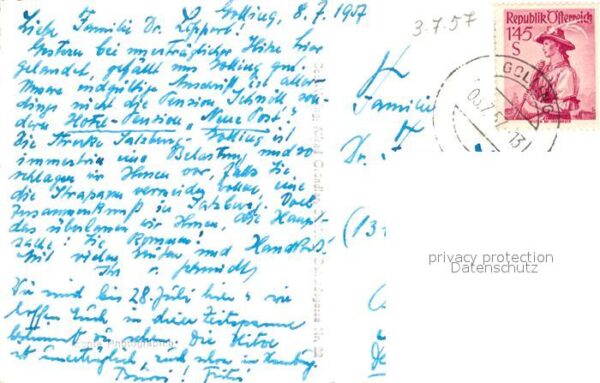 Golling, 8.7.1957
3.7.57
Liebe Familie Dr. Lippert!
Gestern bei unerträglicher Hitze hier
gelandet, gefällt uns Golling gut.
Unsere endgültige Anschrift ist aller-
dings nicht die Pension Schnöll, son-
dern Hotel-Pension "Neue Post".
Die Strecke Salzburg - Golling ist
immerhin eine Belastung und so
schlagen wir Ihnen vor, falls Sie
die Strapazen vermeiden wollen, eine
Zusammenkunft in Salzburg. Doch
das überlassen wir Ihnen, die Haupt-
sache: Sie kommen!
Mit vielen Grüßen und Handkuß!
Ihr
Wir sind bis 28. Juli hier u. wir
hoffen Euch in dieser Zeitspanne
bestimmt zu sehen. Die Hitze
ist unerträglich, auch schon in Hamburg.
Republik Österreich
1.45
S
GOLLING
Familie
Dr.
(13
privacy protection
Datenschutz